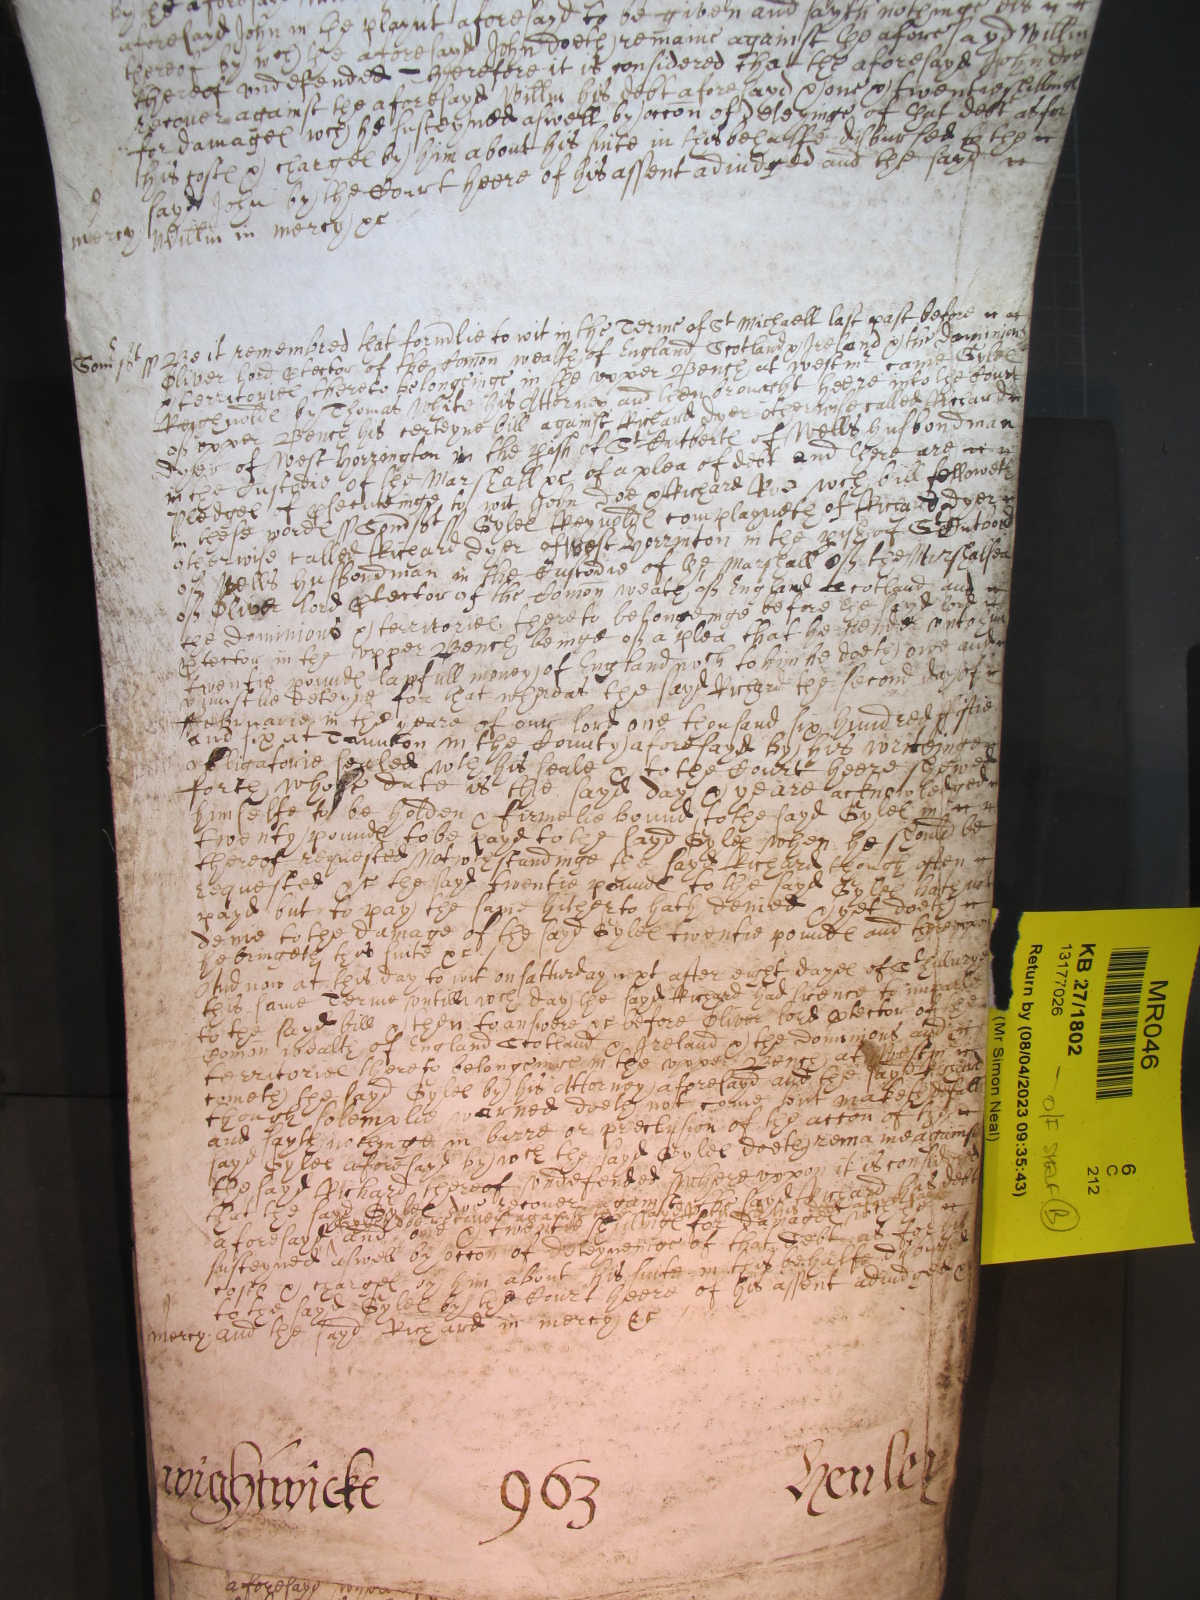 aforesayd John in the playnt aforesayd to be given and sayth nothinge
thereof by wch the aforesayd John doeth remaine against the aforesayd Willm
thereof undefended Therefore it is considered that the aforesayd John doe
recover against the aforesayd Willm his debt aforesayd & one & twentie shillinges
for damages wch he susteyned aswell by occon of deteyninge of that debt as for
his costes & charges by him about his suite in this behalfe disbursed to the
sayd John by the Court heere of his assent adiudged and the sayd
mercy Willm in mercy &c
Somst ss Be it remembred that formlie to wit in the Terme of St Michaell last past before
Oliver lord Ptector of the Comon wealth of England Scotland & Ireland & the dominions
& territories thereto belonginge in the upper Bench at Westmr came Gyles
Reignolds by Thomas White his Attorney and then brought heere into the Court
of upper Bench his certeyne bill against Richard Dyer otherwise called Richard
Dyer of West Horrington in the pish of St Cutberts of Wells husbondman
in the Custodie of the Marshall &c of a plea of debt and there are
pledges of psecutinge to wit John Doe & Richard Roe wch bill followeth
in these wordes ss Somst ss Gyles Reynolds complayneth of Richard Dyer
otherwise called Richard Dyer of West Horrinton in the pish of St
of Wells husbondman in the Custodie of the Marshall of the Marshalsea
of Oliver lord Ptector of the Comon weath of England Scotland and
the dominions & territories thereto belonginge before the sayd lord
Ptector in the upper Bench beinge of a plea that he render unto him
twentie poundes lawfull money of England wch to him he doeth owe and
uniustlie deteyne for that whereas the sayd Richard the second day of
Februarie in the yeare of our lord one thousand six hundred fiftie
and six at Taunton in the County aforesayd by his writeinge
obligatorie sealed wth his seale & to the Court heere shewed
forth whose date is the sayd day & yeare acknowledged
himselfe to be holden & firmelie bound to the sayd Gyles in
twenty poundes to be payd to the sayd Gyles when he should be
thereof requested Notwthstandinge the sayd Richard though often
requested &c the sayd twentie poundes to the sayd Gyles hath not
payd but to pay the same hitherto hath denied & yet doeth
denie to the damage of the sayd Gyles twentie poundes and thereupon
he bringeth this suite &c
And now at this day to wit on Satturday next after eight dayes of St Hillarye
this same Terme untill wch day the sayd Richard had licence to imparle
to the sayd bill & then to answere &c before Oliver lord Ptector of the
Comon wealth of England Scotland & Ireland & the dominions and
territories thereto belonginge in the upper Bench at Westmr
cometh the sayd Gyles by his Attorney aforesayd and the sayd Richard
though solemplie warned doeth not come but maketh defalt
and sayth nothinge in barre or preclusion of the accon of the
sayd Gyles aforesayd by wch the sayd Gyles doeth remaine against
the sayd Richard thereof undefended Whereuppon it is considered
that the sayd Gyles doe recover against the sayd Richard his debt
aforesayd and one & twentie shillinges for damages wch he
susteyned aswell by occon of deteyninge of that debt as for his
costes & charges by him about his suite in this behalfe disbursed
to the sayd Gyles by the Court heere of his assent adiudged
mercy and the sayd Richard in mercy &c
Wightwicke 963 Henley
aforesayd
MR046
6
C
212
KB 27/1802
13177026
O/F SHELF B
Return by (08/04/2023 09:35:43)
(Mr Simon Neal)